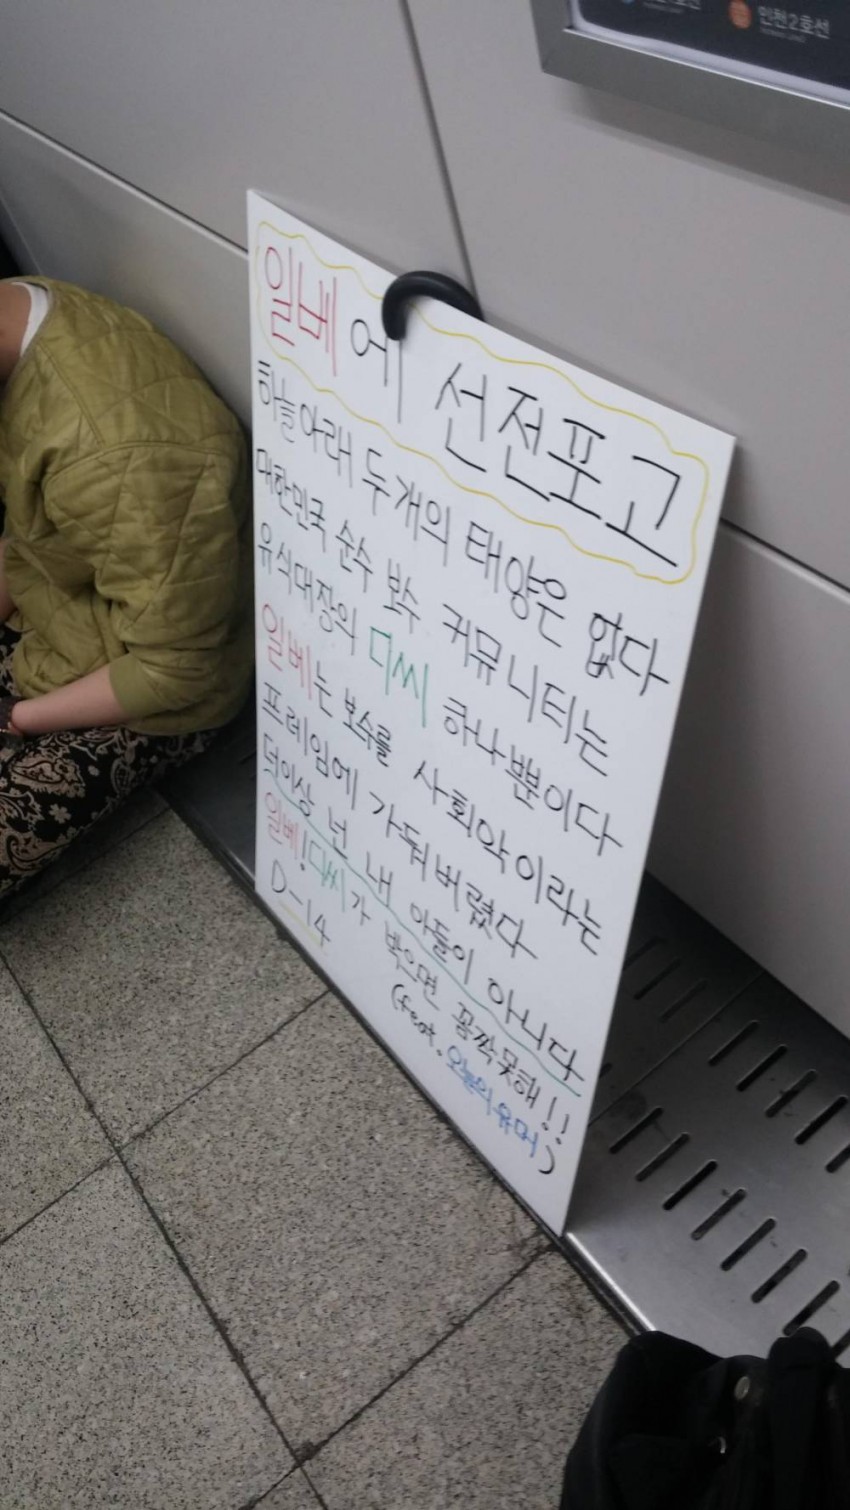 인천2호선
일베에 선전포고
하늘아래 두개의 태양은 없다
대한민국 순수 보수 커뮤니티는
유식대장의 디씨 하나뿐이다
일베는 보수를 사회악이라는
프레임에 가둬버렸다
더이상 넌 내 아들이 아니다
일베!디씨가 박으면 꼼짝못해!!
D-14
(feat. 오늘의유머)